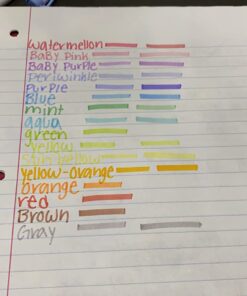 watermellon
Baby Pink
Baby Purple
Periwinkle
Purple
Blue
mint
aqua
green
yellow
Sun yellow
Yellow-Orange
orange
red
Brown
Gray